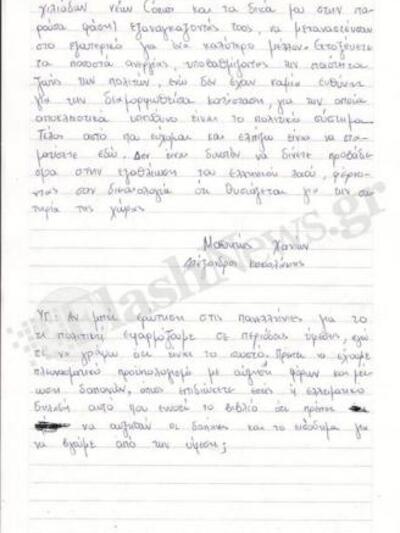 χιλιάδων νέων (όπως και τα δικά μου στην πα-
ρούσα φάση) εξαναγκάζοντάς τους, να μεταναστεύσουν
στο εξωτερικό για ένα καλύτερο μέλλον. Εκτοξεύσετε
τα ποσοστά ανεργίας, υποβαθμίζοντας την ποιότητα
ζωής των πολιτών, ενώ δεν έχουν καμία ευθύνη
για την διαμορφωθείσα κατάσταση, για την οποία
αποκλειστικά υπεύθυνο είναι το πολιτικό σύστημα.
Τέλος αυτό που εύχομαι και ελπίζω είναι να στα-
ματήσετε εδώ. Δεν είναι δυνατόν να δίνετε προβάδι-
σμα στην εξαθλίωση του ελληνικού λαού, φέρο-
ντας σαν δικαιολογία ότι θυσιάζεται για την σω-
τηρία της χώρας
Μαθητής Χανίων
FlashNews.gr
ΥΓ: Αν μπει ερώτηση στις πανελλήνιες για το
τι πολιτική εφαρμόζουμε σε περιόδους ύφεσης, εγώ
τι να γράψω ότι είναι το σωστό; Πρέπει να έχουμε
πλεονασματικό προϋπολογισμό με αύξηση φόρων και μεί-
ωση δαπανών, όπως επιδιώκετε εσείς ή ελλειμματικό
δηλαδή αυτό που εννοεί το βιβλίο ότι πρέπει
να αυξηθούν οι δαπάνες και το εισόδημα για
να βγούμε από την ύφεση;